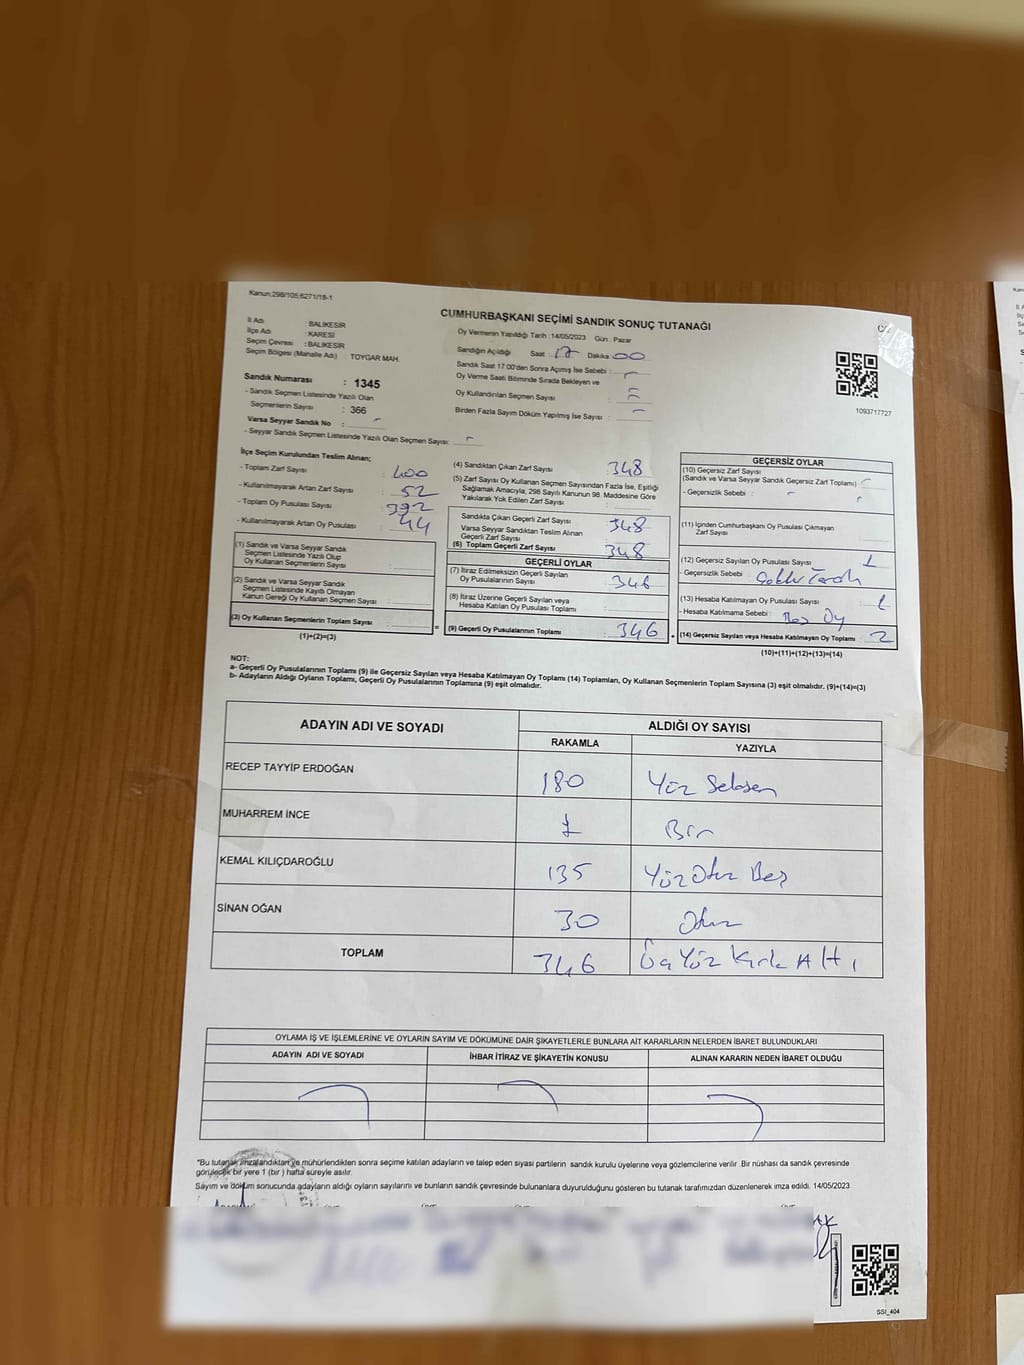 Kanun;298/105;6271/18-1
CUMHURBAŞKANI SEÇİMİ SANDIK SONUÇ TUTANAĞI
İl Adı : BALIKESİR
İlçe Adı : KARESİ
Seçim Çevresi : BALIKESİR
Seçim Bölgesi (Mahalle Adı) : TOYGAR MAH.
Sandık Numarası : 1345
- Sandık Seçmen Listesinde Yazılı Olan
Seçmenlerin Sayısı : 366
Varsa Seyyar Sandık No :
- Seyyar Sandık Seçmen Listesinde Yazılı Olan Seçmen Sayısı:
Oy Vermenin Yapıldığı Tarih : 14/05/2023 Gün : Pazar
Sandığın Açıldığı Saat : 17 Dakika : 00
Sandık Saat 17:00'den Sonra Açımış İse Sebebi :
Oy Verme Saati Bitiminde Sırada Bekleyen ve
Oy Kullandırılan Seçmen Sayısı :
Birden Fazla Sayım Döküm Yapılmış İse Sayısı :
1093717727
İlçe Seçim Kurulundan Teslim Alınan;
- Toplam Zarf Sayısı : 400
- Kullanılmayarak Artan Zarf Sayısı : 52
- Toplam Oy Pusulası Sayısı : 392
- Kullanılmayarak Artan Oy Pusulası : 44
(1) Sandık ve Varsa Seyyar Sandık
Seçmen Listesinde Yazılı Olup
Oy Kullanan Seçmenlerin Sayısı :
(2) Sandık ve Varsa Seyyar Sandık
Seçmen Listesinde Kayıtlı Olmayan
Kanun Gereği Oy Kullanan Seçmen Sayısı :
(3) Oy Kullanan Seçmenlerin Toplam Sayısı :
(1)+(2)=(3)
(4) Sandıktan Çıkan Zarf Sayısı : 348
(5) Zarf Sayısı Oy Kullanan Seçmen Sayısından Fazla İse, Eşitliği
Sağlamak Amacıyla; 298 Sayılı Kanunun 98. Maddesine Göre
Yakılarak Yok Edilen Zarf Sayısı :
Sandıkta Çıkan Geçerli Zarf Sayısı : 348
Varsa Seyyar Sandıktan Teslim Alınan
Geçerli Zarf Sayısı :
(6) Toplam Geçerli Zarf Sayısı : 348
GEÇERLİ OYLAR
(7) İtiraz Edilmeksizin Geçerli Sayılan
Oy Pusulalarının Sayısı : 346
(8) İtiraz Üzerine Geçerli Sayılan veya
Hesaba Katılan Oy Pusulası Toplamı :
= (9) Geçerli Oy Pusulalarının Toplamı : 346 +
GEÇERSİZ OYLAR
(10) Geçersiz Zarf Sayısı
(Sandık ve Varsa Seyyar Sandık Geçersiz Zarf Toplamı) :
- Geçersizlik Sebebi :
(11) İçinden Cumhurbaşkanı Oy Pusulası Çıkmayan
Zarf Sayısı :
(12) Geçersiz Sayılan Oy Pusulası Sayısı : 1
- Geçersizlik Sebebi :
(13) Hesaba Katılmayan Oy Pusulası Sayısı : 1
- Hesaba Katılmama Sebebi : Boş Oy
(14) Geçersiz Sayılan veya Hesaba Katılmayan Oy Toplamı : 2
(10)+(11)+(12)+(13)=(14)
NOT:
a- Geçerli Oy Pusulalarının Toplamı (9) ile Geçersiz Sayılan veya Hesaba Katılmayan Oy Toplamı (14) Toplamları, Oy Kullanan Seçmenlerin Toplam Sayısına (3) eşit olmalıdır. (9)+(14)=(3)
b- Adayların Aldığı Oyların Toplamı, Geçerli Oy Pusulalarının Toplamına (9) eşit olmalıdır.
ADAYIN ADI VE SOYADI ALDIĞI OY SAYISI
RAKAMLA YAZIYLA
RECEP TAYYİP ERDOĞAN 180 Yüz Seksen
MUHARREM İNCE 1 Bir
KEMAL KILIÇDAROĞLU 135 Yüz Otuz Beş
SİNAN OĞAN 30 Otuz
TOPLAM 346 Üç Yüz Kırk Altı
OYLAMA İŞ VE İŞLEMLERİNE VE OYLARIN SAYIM VE DÖKÜMÜNE DAİR ŞİKAYETLERLE BUNLARA AİT KARARLARIN NELERDEN İBARET BULUNDUKLARI
ADAYIN ADI VE SOYADI İHBAR İTİRAZ VE ŞİKAYETİN KONUSU ALINAN KARARIN NEDEN İBARET OLDUĞU
*Bu tutanak imzalandıktan ve mühürlendikten sonra seçime katılan adayların ve talep eden siyasi partilerin sandık kurulu üyelerine veya gözlemcilerine verilir .Bir nüshası da sandık çevresinde
görülecek bir yere 1 (bir ) hafta süreyle asılır.
Sayım ve döküm sonucunda adayların aldığı oyların sayılarını ve bunların sandık çevresinde bulunanlara duyurulduğunu gösteren bu tutanak tarafımızdan düzenlenerek imza edildi. 14/05/2023
SSI_404